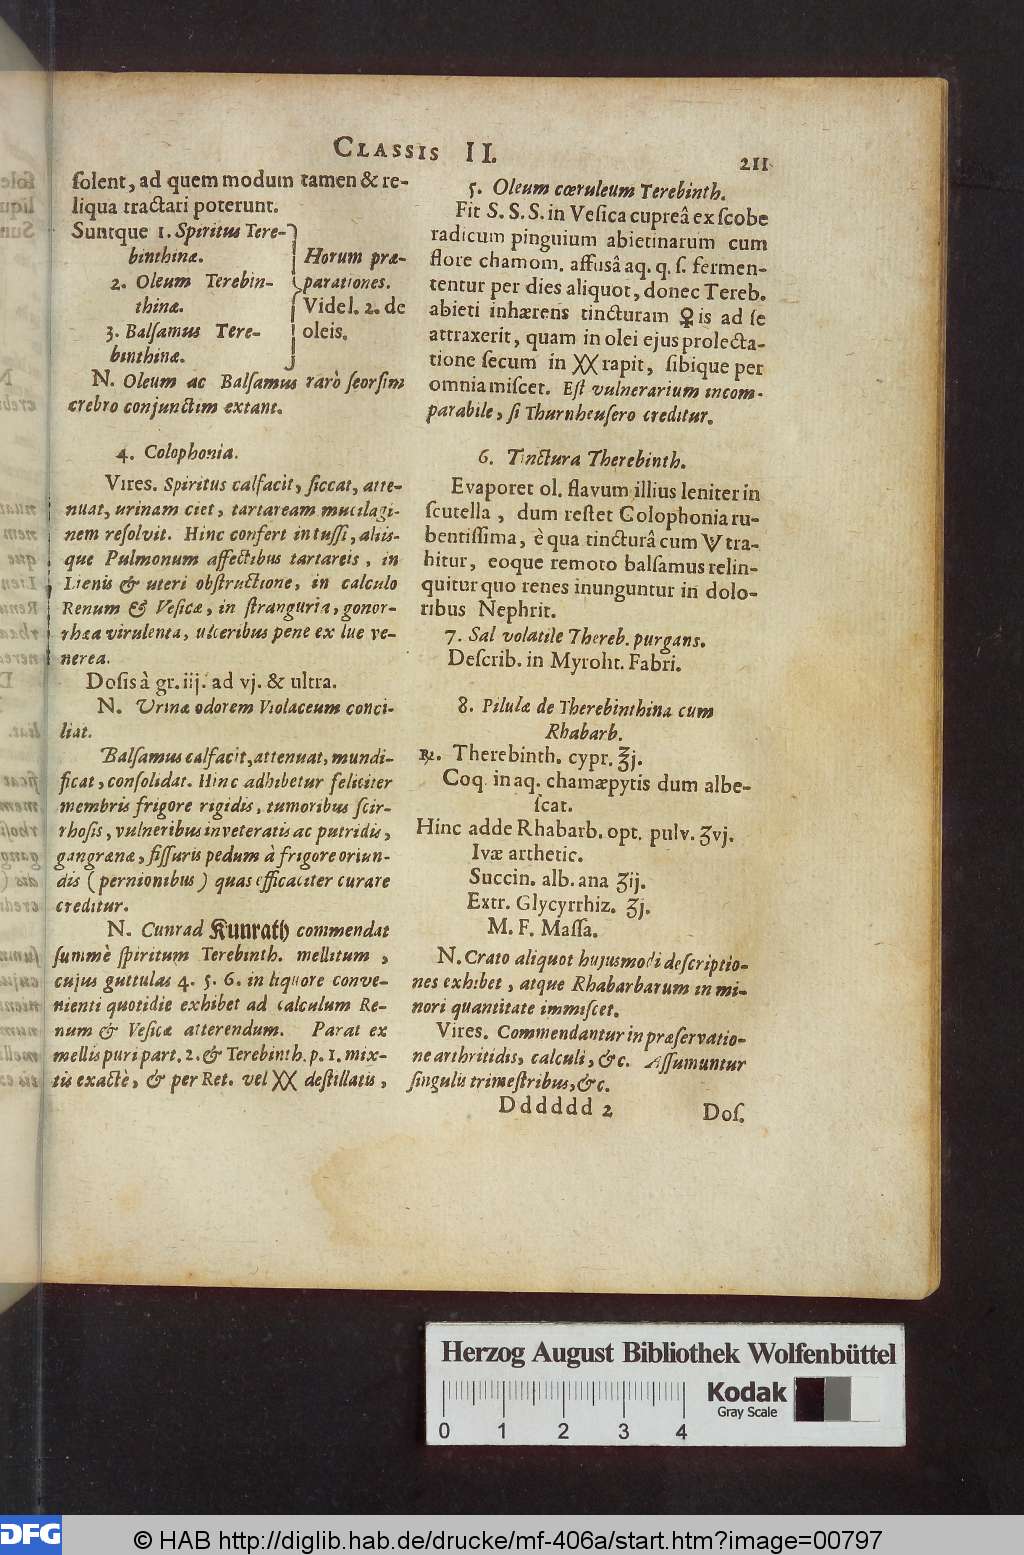 CLASSIS II.
211
solent, ad quem modum tamen & re-
liqua tractari poterunt.
Suntque 1. Spiritus Tere-
binthinæ.
2. Oleum Terebin-
thinæ.
3. Balsamus Tere-
binthinæ.
Horum præ-
parationes.
Vide l. 2. de
oleis.
N. Oleum ac Balsamus rarò seorsim
crebro conjunctim extant.
4. Colophonia.
Vires. Spiritus calfacit, siccat, atte-
nuat, urinam ciet, tartaream mucilagi-
nem resolvit. Hinc confert in tussi, aliis-
que Pulmonum affectibus tartareis, in
Lienis & uteri obstructione, in calculo
Renum & Vesicæ, in stranguria, gonor-
rhæa virulenta, ulceribus pene ex lue ve-
nerea.
Dosis à gr. iij. ad vj. & ultra.
N. Urinæ odorem Violaceum conci-
liat.
Balsamus calfacit, attenuat, mundi-
ficat, consolidat. Hinc adhibetur feliciter
membris frigore rigidis, tumoribus scir-
rhosis, vulneribus inveteratis ac putridis,
gangrænæ, fissuris pedum à frigore oriun-
dis (pernionibus) quas efficaciter curare
creditur.
N. Cunrad Kunrath commendat
summè spiritum Terebinth. mellitum,
cujus guttulas 4. 5. 6. in liquore conve-
nienti quotidie exhibet ad calculum Re-
num & Vesicæ atterendum. Parat ex
mellis puri part. 2. & Terebinth. p. 1. mix-
tis exactè, & per Ret. vel XX destillatis,
5. Oleum cœruleum Terebinth.
Fit S. S. S. in Vesica cupreâ ex scobe
radicum pinguium abietinarum cum
flore chamom. affusâ aq. q. s. fermen-
tentur per dies aliquot, donec Tereb.
abieti inhærens tincturam ♀is ad se
attraxerit, quam in olei ejus prolecta-
tione secum in XX rapit, sibique per
omnia miscet. Est vulnerarium incom-
parabile, si Thurnheusero creditur.
6. Tinctura Therebinth.
Evaporet ol. flavum illius leniter in
scutella, dum restet Colophonia ru-
bentissima, è qua tincturâ cum V tra-
hitur, eoque remoto balsamus relin-
quitur quo renes inunguntur in dolo-
ribus Nephrit.
7. Sal volatile Thereb. purgans.
Describ. in Myroht. Fabri.
8. Pilulæ de Therebinthina cum
Rhabarb.
℞. Therebinth. cypr. ʒj.
Coq. in aq. chamæpytis dum albe-
scat.
Hinc adde Rhabarb. opt. pulv. ʒvj.
Ivæ arthetic.
Succin. alb. ana ʒij.
Extr. Glycyrrhiz. ʒj.
M. F. Massa.
N. Crato aliquot hujusmodi descriptio-
nes exhibet, atque Rhabarbarum in mi-
nori quantitate immiscet.
Vires. Commendantur in præservatio-
ne arthritidis, calculi, &c. Assumuntur
singulis trimestribus, &c.
Dddddd 2
Dos.
Herzog August Bibliothek Wolfenbüttel
Kodak
Gray Scale
0 1 2 3 4
DFG
© HAB http://diglib.hab.de/drucke/mf-406a/start.htm?image=00797